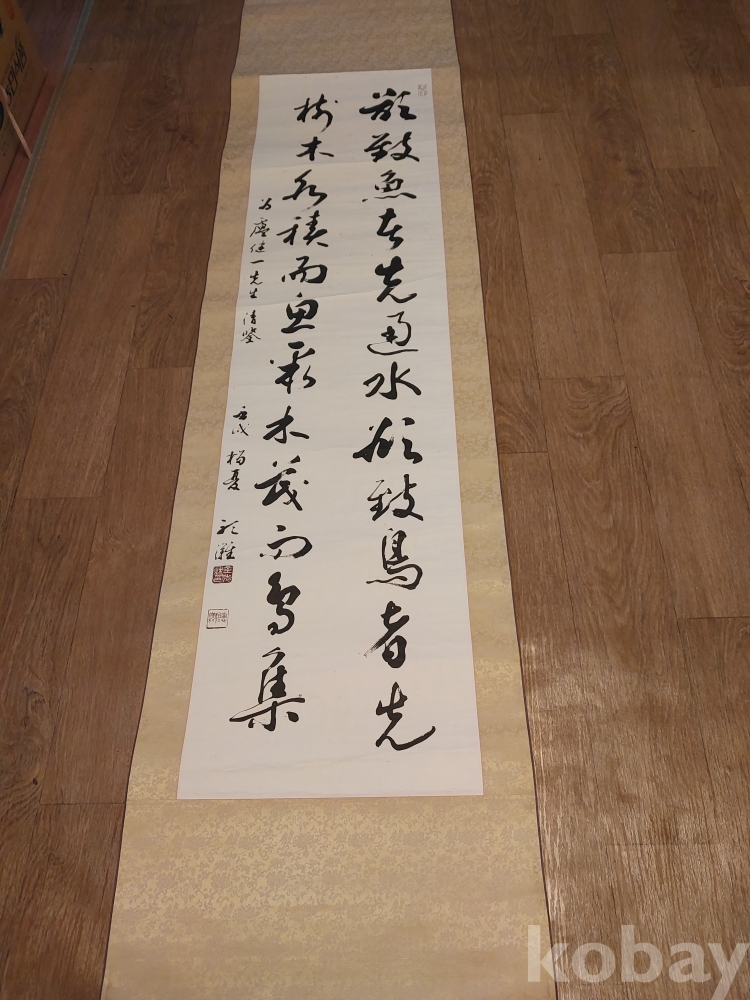 欲致魚者先通水欲致鳥者先
樹木水積而魚聚木茂而鳥集
為盧健一先生 清鑒
壬戌 榴夏
kobay